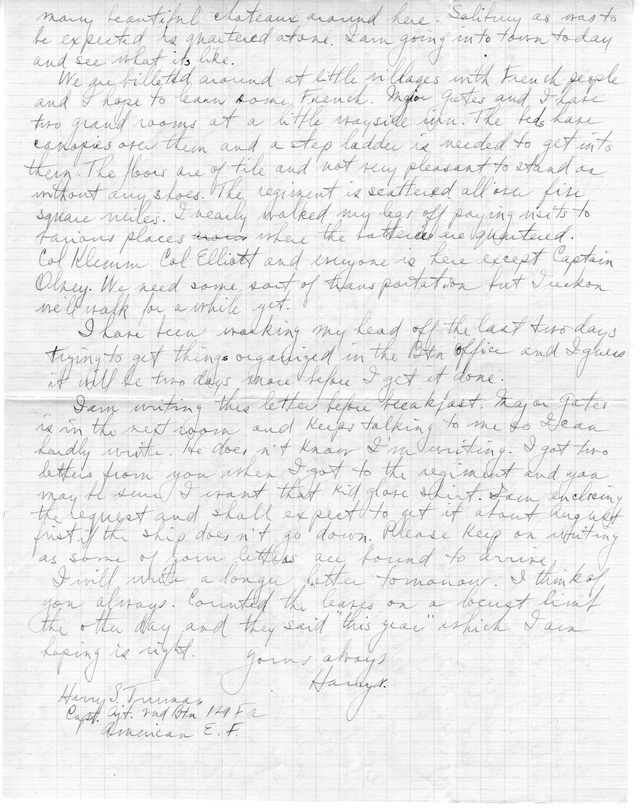 many beautiful chateaux around here. Salisbury as was to
be expected is quartered at one. I am going into town today
and see what its like.
We are billeted around at little villages with French people
and I hope to learn some French. Major Gates and I have
two grand rooms at a little wayside inn. The beds have
canopies over them and a step ladder is needed to get into
them. The floors are of tile and not very pleasant to stand on
without any shoes. The regiment is scattered all over five
square miles. I nearly walked my legs off paying visits to
various places where the batteries are quartered.
Col Klemm Col Elliott and everyone is here except Captain
Olney. We need some sort of transportation but I reckon
we'll walk for a while yet.
I have been working my head off the last two days
trying to get things organized in the Btn office and I guess
it will be two days more before I get it done.
I am writing this letter before breakfast. Major Gates
is in the next room and keeps talking to me so I can
hardly write. He does n't know I'm writing. I got two
letters from you when I got to the regiment and you
may be sure I want that kid glove shirt. I am enclosing
the request and shall expect to get it about August
first if the ship does n't go down. Please keep on writing
as some of your letters are bound to arrive.
I will write a longer letter tomorrow. I think of
you always. Counted the leaves on a locust limb
the other day and they said "this year" which I am
hoping is right.
Yours always
Harry
Harry S. Truman
Capt. Ajt. 2nd Btn 129 Fa
American E. F.